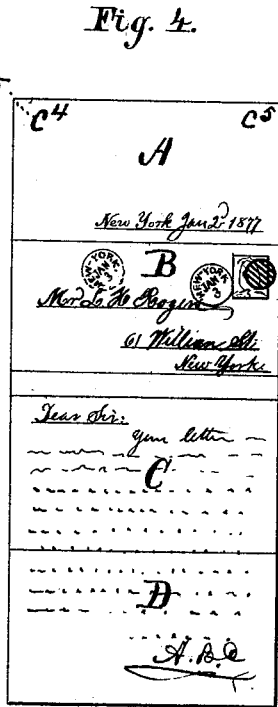 Fig. 4.
C⁴ C⁵
A
New York Jan 2ᵈ 1877
B
NEW-YORK JAN 3
NEW-YORK JAN 3
Mr L. H. Rogers
61 William St.
New York.
Dear Sir:
your letter
C
D
A. B. C